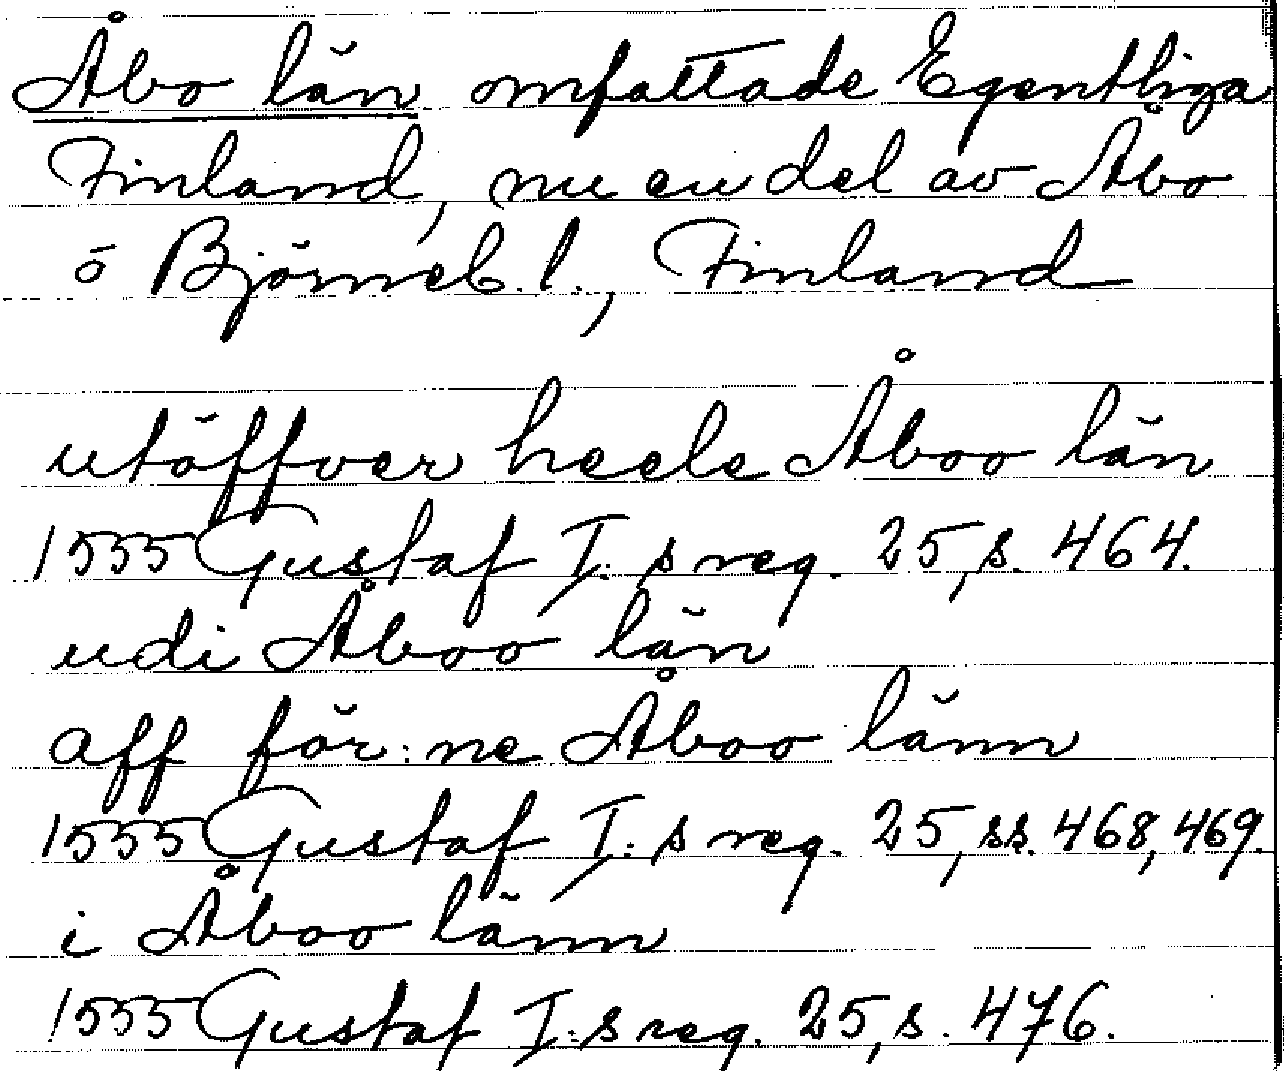 Åbo län omfattade Egentliga
Finland, nu en del av Åbo
o Björneb. l., Finland
utöffver heele Åboo län
1555 Gustaf I:s reg. 25, s. 464.
udi Åboo län
aff för:ne Åboo länn
1555 Gustaf I:s reg. 25, ss. 468, 469.
i Åboo länn
1555 Gustaf I:s reg. 25, s. 476.